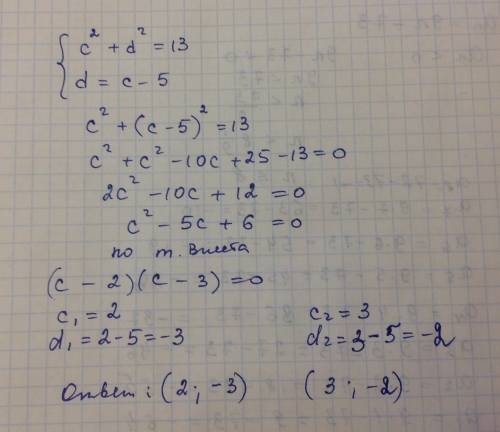 c² + d² = 13
d = c - 5
c² + (c - 5)² = 13
c² + c² - 10c + 25 - 13 = 0
2c² - 10c + 12 = 0
c² - 5c + 6 = 0
по т. Виета
(c - 2)(c - 3) = 0
c₁ = 2 c₂ = 3
d₁ = 2 - 5 = -3 d₂ = 3 - 5 = -2
Ответ: (2; -3) (3; -2)